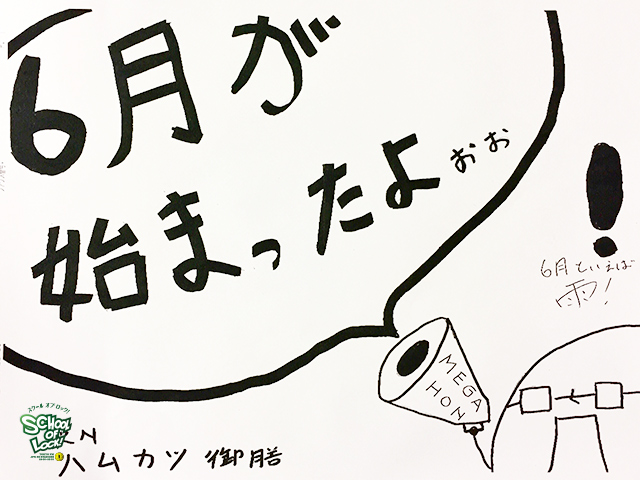 6月が
始まったよぉぉ
!
6月といえば
雨!
MEGA
HON
スクール オブ ロック!
SCHOOL
OF
LOCK!
RN
ハムカツ 御膳